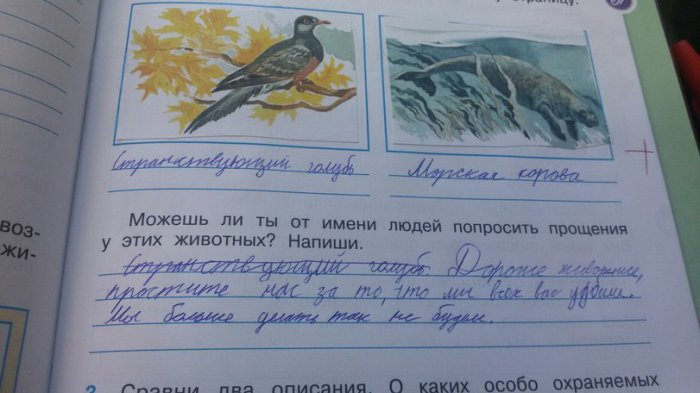 страницу.
Странствующий голубь
Морская корова
воз-
жи-
Можешь ли ты от имени людей попросить прощения
у этих животных? Напиши.
Странствующий голубь. Дорогие животные,
простите нас за то, что мы всех вас убили.
Мы больше делать так не будем.
2 Сравни два описания. О каких особо охраняемых